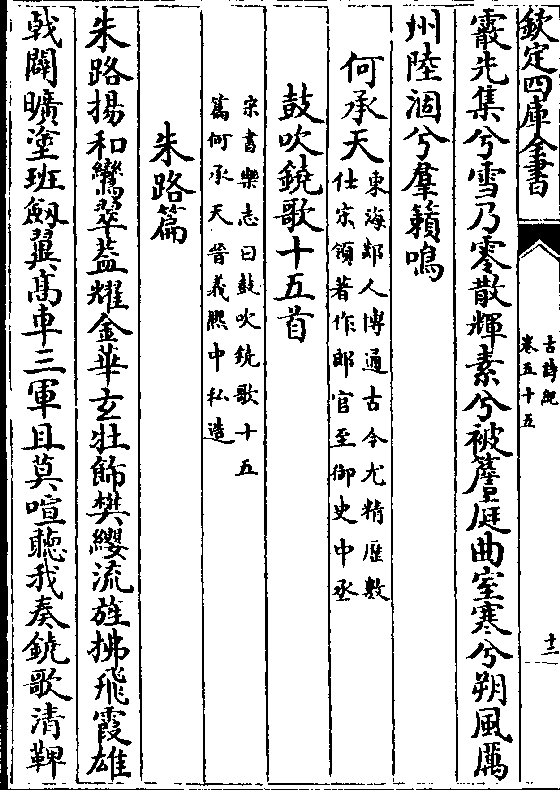 欽定四庫全書
古詩紀
卷五十五
十二
霰先集兮雪乃零散輝素兮被簷庭曲室寒兮朔風厲
州陸涸兮羣籟鳴
何承天
東海郯人博通古今尤精歷數
仕宋領著作郎官至御史中丞
鼓吹鐃歌十五首
宋書樂志曰鼓吹鐃歌十五
篇何承天晉義熙中私造
朱路篇
朱路揚和鸞翠葢耀金華玄牡飾樊纓流旌拂飛霞雄
戟闢曠塗班劔翼髙車三軍且莫喧聽我奏鐃歌清鞞